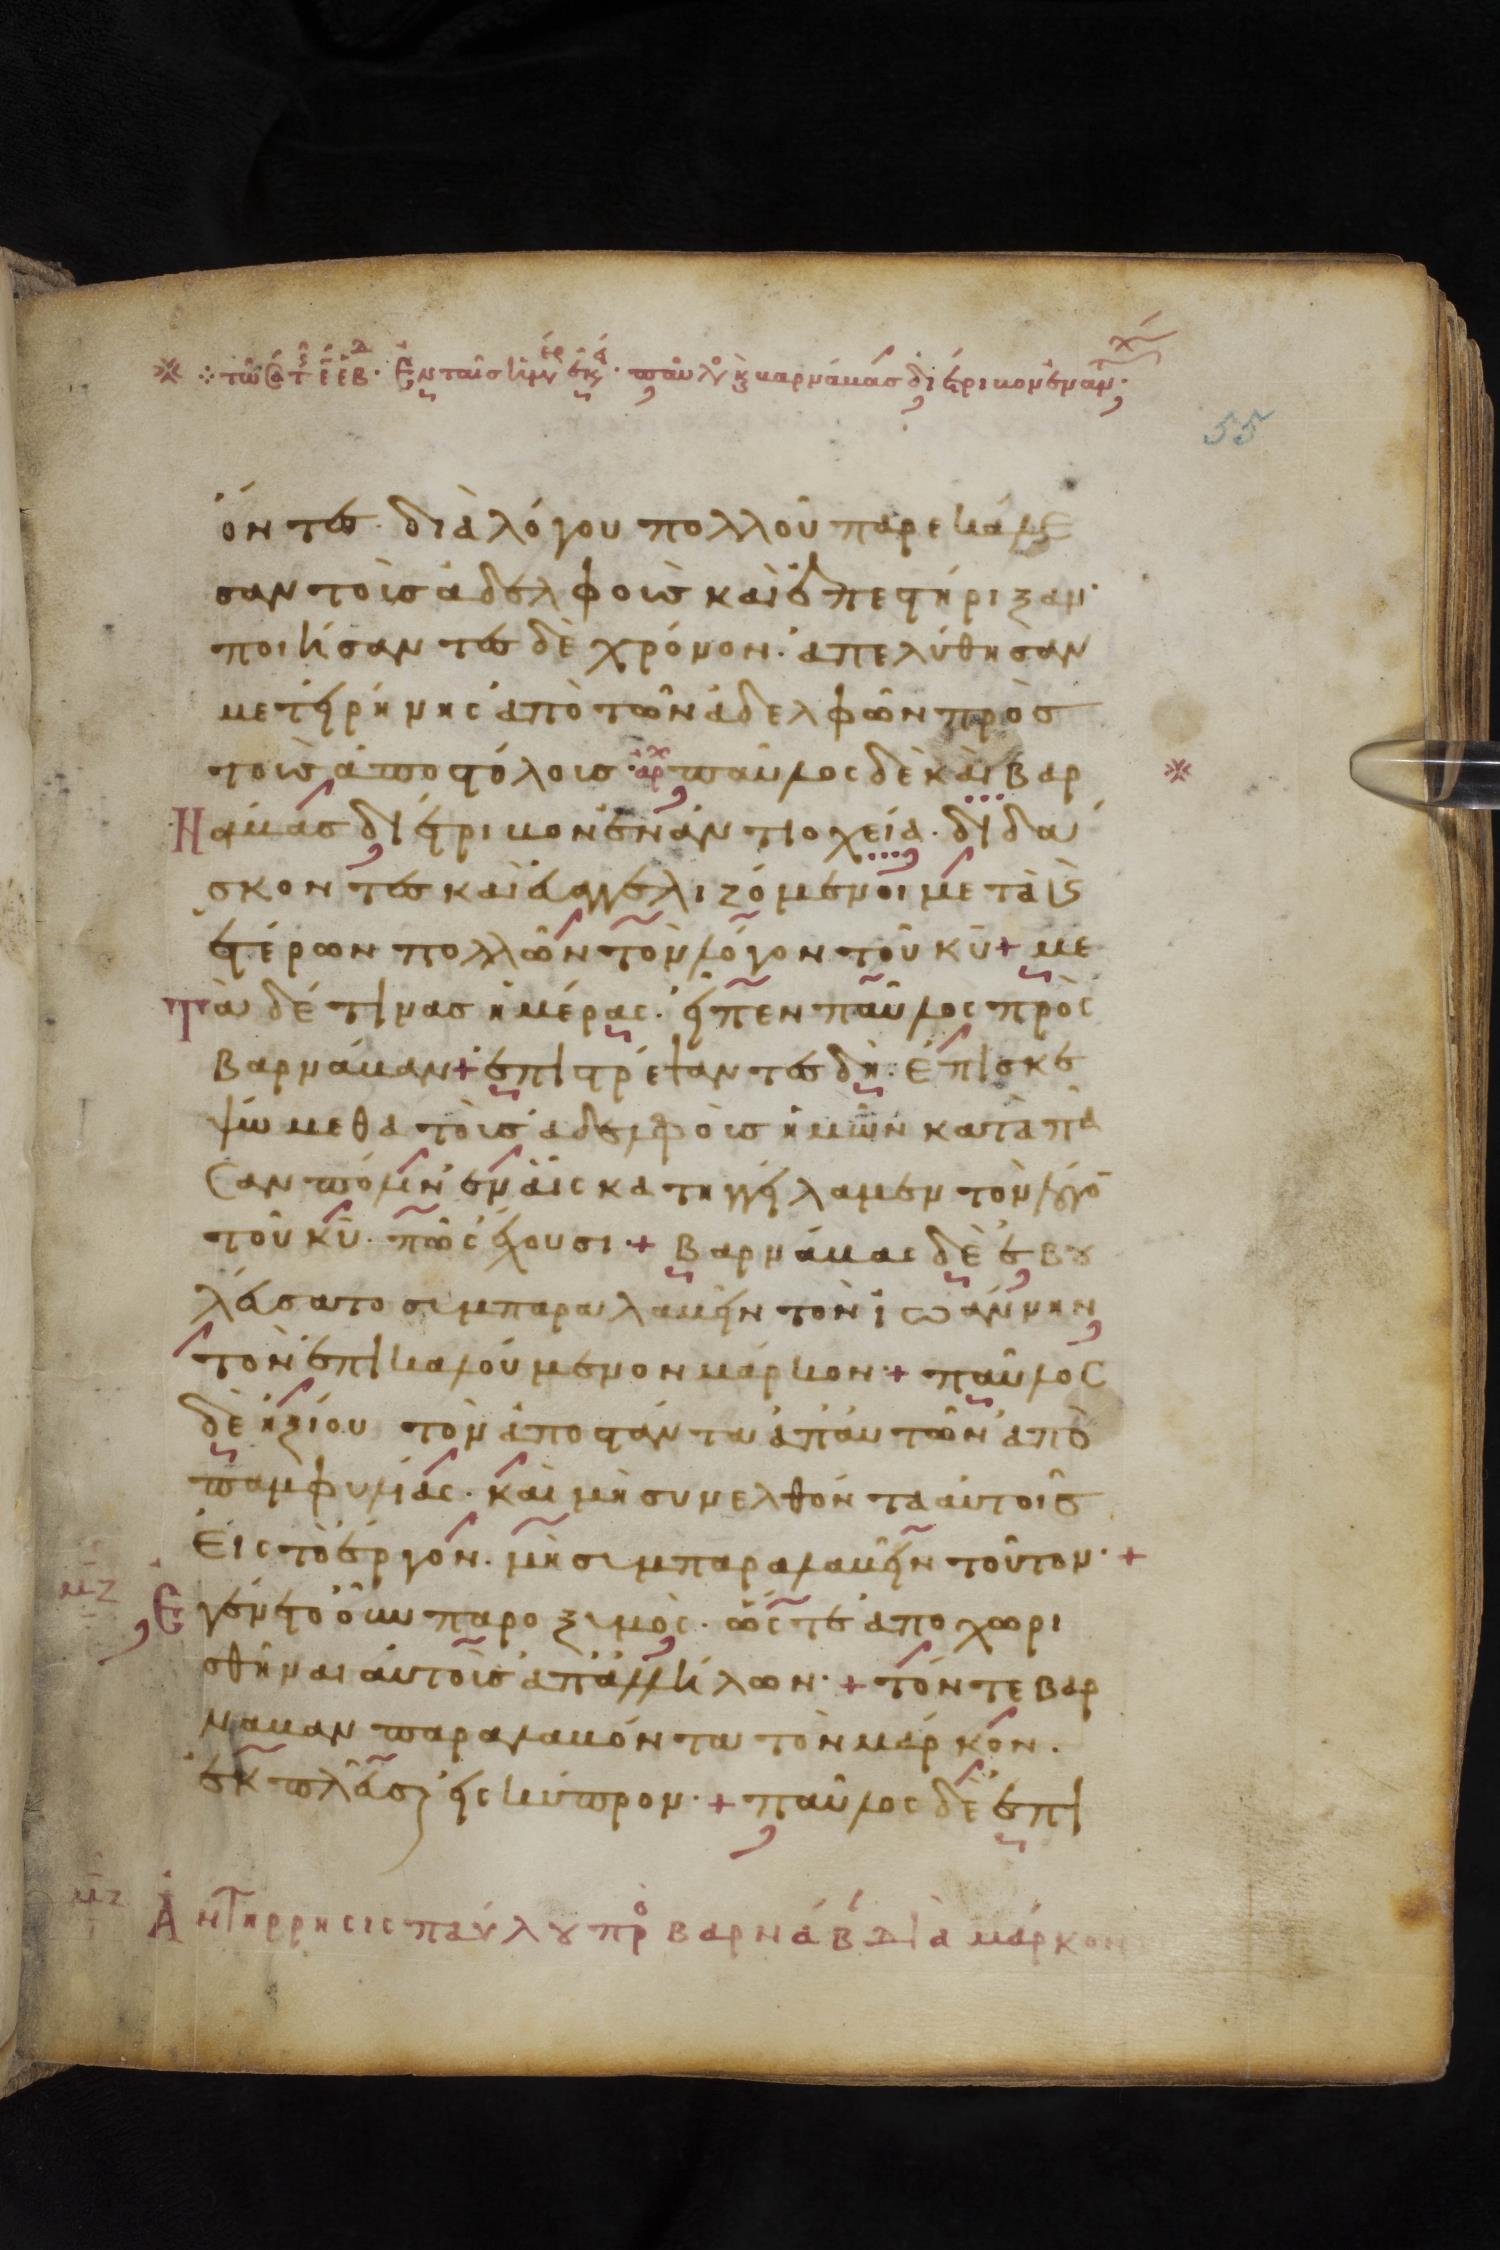 ※ ⁘ τῶ σα τ ε εβδ· Ἐν ταῖς ἡμέρ ἐκ· παῦλος κ βαρνάβας διέτριβον ἐν ἀντιχ
55
ὄντες· διὰ λόγου πολλοῦ παρεκάλε
σαν τοὺς ἀδελφοὺς καὶ ἐπεστήριξαν·
ποιήσαντες δὲ χρόνον· ἀπελύθησαν
μετ εἰρήνης ἀπὸ τῶν ἀδελφῶν πρὸς
τοὺς ἀποστόλους· ἀρχ παῦλος δὲ καὶ βαρ ※
νάβας διέτριβον ἐν ἀντιοχεία· διδά
σκοντες καὶ εὐαγγελιζόμενοι μετὰ καὶ ἑ
τέρων πολλῶν τὸν λόγον τοῦ κυ + με
τὰ δέ τινας ἡμέρας· εἶπεν παῦλος πρὸς
βαρνάβαν + ἐπιστρέψαντες δὴ· ἐπισκε
ψώμεθα τοὺς ἀδελφοὺς ἡμῶν κατὰ πᾶ
σαν πόλιν ἐν αἷς κατηγγείλαμεν τὸν λόγο
τοῦ κυ· πῶς ἔχουσι· + βαρνάβας δὲ ἐβου
λεύσατο συμπαραλαβεῖν τὸν ἰωάννην
τὸν ἐπικαλούμενον μάρκον· + παῦλος
δὲ ἠξίου τὸν ἀποστάντα ἀπ αὐτῶν ἀπὸ
παμφυλίας· καὶ μὴ συνελθόντα αὐτοῖς
εἰς τὸ ἔργον· μὴ συμπαραλαβεῖν τοῦτον· +
μζ Ἐγένετο οὖν παροξυσμὸς· ὥστε ἀποχωρι
σθῆναι αὐτοὺς ἀπ ἀλλήλων· + τόν τε βαρ
νάβαν παραλαβόντα τὸν μάρκον·
ἐκπλεῦσαι εἰς κύπρον· + παῦλος δὲ ἐπι
μζ Ἀντίρρησις παύλου πρὸ βαρνάβ διὰ μάρκον